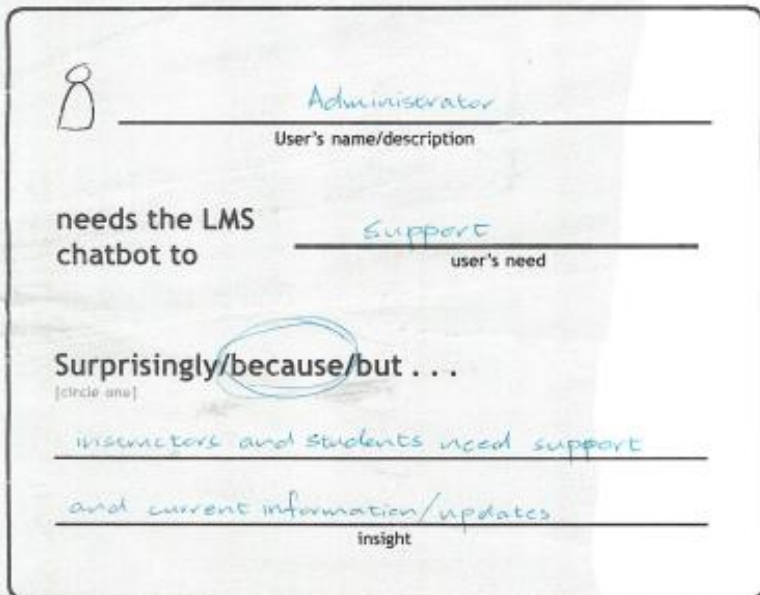 Administrator
User's name/description
needs the LMS
chatbot to
support
user's need
Surprisingly/because/but . . .
[circle one]
instructors and students need support
and current information/updates
insight